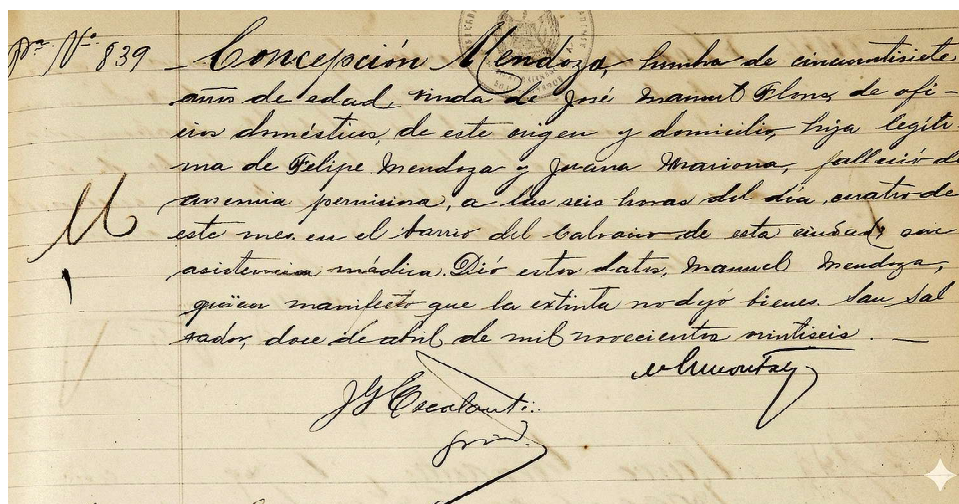 Pa. Nº 839 - Concepción Mendoza, hembra de cincuentisiete
años de edad, viuda de José Manuel Flores, de ofi-
cios domésticos, de este origen y domicilio, hija legíti-
ma de Felipe Mendoza y Juana Mariona, falleció de
anemia perniciosa, a las seis horas del día cuatro de
este mes, en el barrio del Calvario de esta ciudad, sin
asistencia médica. Dió estos datos, Manuel Mendoza,
quien manifestó que la extinta no dejó bienes. San Sal
vador, doce de abril de mil novecientos veintiseis. —
J G Escalante